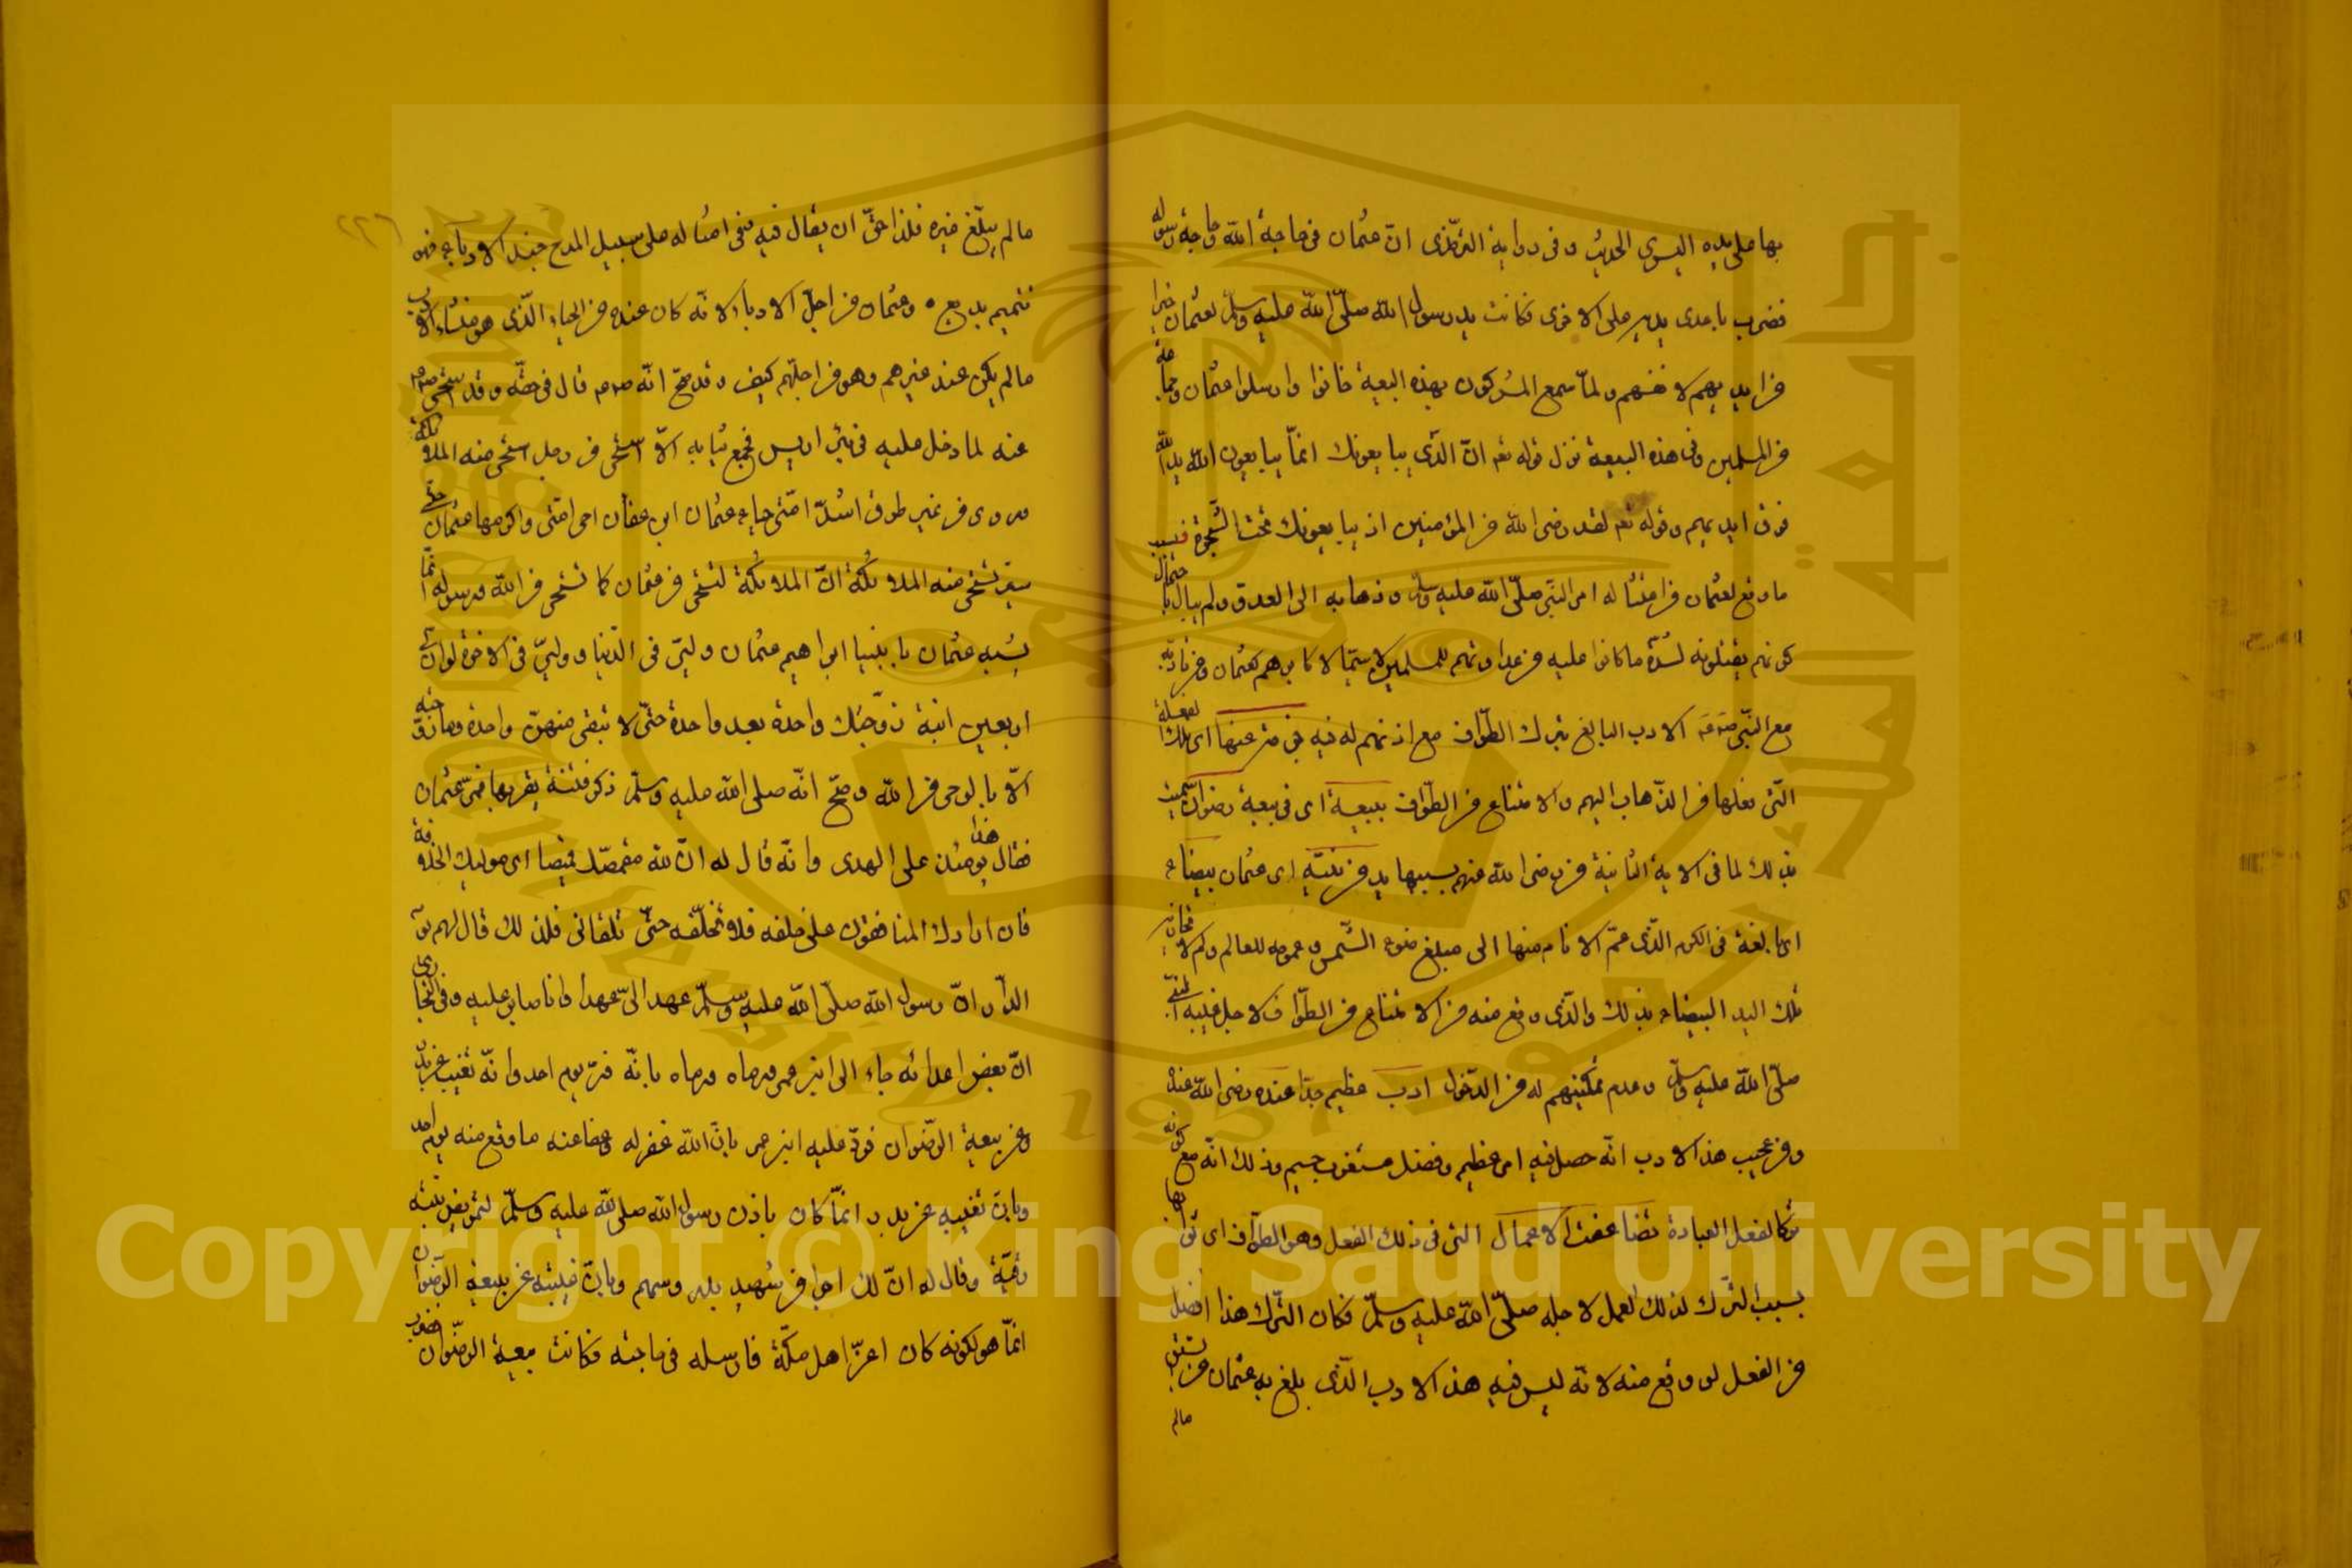 بها على يده اليسرى الحديث وفى رواية الترمذى ان عثمان فى حاجة الله وحاجة رسوله
فضرب باحدى يديه على الاخرى فكانت يد رسول الله صلّى الله عليه وسلّم لعثمان خيرا
من ايديهم لانفسهم ولمّا سمع المشركون بهذه البيعة خافوا وارسلوا عثمان وجماعة
من المسلمين وفى هذه البيعة نزل قوله تعـ انّ الذّى يبايعونك انمّا يبايعون الله يد الله
فوق ايديهم وقوله تعـ لقد رضى الله عن المؤمنين اذ يبايعونك تحت الشّجرة فبسبب
ما وقع لعثمان من امتثاله امر النبّى صلّى الله عليه وسلّم وذهابه الى العدو ولم يبال باحتمال
كونهم يقتلونه لشدّة ما كانوا عليه من عداوتهم للمسلمين لا سيّما لاكابرهم كعثمان ومن تادّبه
مع النبّى صـ مـ الادب البالغ بترك الطّواف مع اذنهم له فيه جزته عنها اى تلك الفعلة
التّى فعلها من الذّهاب اليهم والامتناع من الطّواف ببيعة اى فى بيعة رضوان سميت
بذلك لما فى الاية الثانية من رضى الله عنهم بسببها يد من نبيّه اى عثمان بيضاء
اى بالغة فى الكرم الذّى عمّ الانام منها الى مبلغ ضوء الشّمس وعمومه للعالم وكم لا
تلك اليد البيضاء بذلك والذّى وقع منه من الامتناع من الطّواف لاجل غيبة النبّى
صلّى الله عليه وسلّم وعدم تمكينهم له من الدّخول ادب عظيم جدّا عنده رضى الله عنه
ومن عجيب هذا الادب انّه حصل فيه امر عظيم وفضل مستغرب جسيم وذلك انّه مع كونه
تركا لفعل العبادة تضاعفت الاعمال التى فى ذلك الفعل وهو الطّواف اى ثوابها
بسبب الترّك لذلك العمل لاجله صلّى الله عليه وسلّم فكان الترّك هذا افضل
من الفعل لو وقع منه لانّه ليس فيه هذا الادب الذّى بلغ به عثمان من
مالم
٢٢٦
مالم يبلّغ غيره فلذا حقّ ان يقال فيه وفى امثاله على سبيل المدح حبذا الادباء فهو
تتميم بديع ه وعثمان من اجلّ الادباء لانّه كان عنده من الحياء الذّى هو منشاء الادب
مالم يكن عند غيرهم وهو من اجلّهم كيف وقد صحّ انّه صـ مـ قال فى حقّه وقد استحى صـ مـ
منه لما دخل عليه فى بئر اريس فجمع ثيابه الّا استحى من رجل استحى منه الملائكة
وروى من غير طرق اشدّ امتّى حياء عثمان ابن عفّان احيى امتى واكرمها عثمان حيّى
ستير تستحى منه الملائكة انّ الملائكة لتستحى من عثمان كما تستحى من الله ورسوله انّما
يشبه عثمان بابينا ابراهيم عثمان وليّى فى الدّنيا ووليّى فى الاخرة لو انّ لى
اربعين ابنة زوّجتك واحدة بعد واحدة حتّى لا تبقى منهنّ واحدة وما زوّجته
الّا بالوحى من الله وصحّ انّه صلى الله عليه وسلّم ذكر فتنة يقربها فمرّ عثمان
فقال هذا يومئذ على الهدى وانّه قال له انّ الله مقمصّك قميصا اى موليك الخلافة
فان ارادك المنافقون على خلعه فلا تخلعه حتّى تلقانى فلذلك قال لهم يوم
الدّار انّ رسول الله صلّى الله عليه وسلّم عهد الىّ عهدا وانا صابر عليه وفى البخارى
انّ بعض اعدائه جاء الى ابن عمر ورماه ورماه بانّه فرّ يوم احد وانّه تغيب عن بدر
وعن بيعة الرّضوان فردّ عليه ابن عمر بانّ الله غفر له وعفا عنه ما وقع منه يوم احد
وبانّ تغيبه عن بدر انمّا كان باذن رسول الله صلى الله عليه وسلّم لتمريض بنته
رقيّة وقال له انّ لك اجر من شهد بدر وسهم وبانّ غيبته عن بيعة الرّضوان
انمّا هو لكونه كان اعزّ اهل مكّة فارسله فى حاجته فكانت بيعة الرضّوان فضرب
Copyright © King Saud University
جامعة الملك سعود
King Saud University 1957